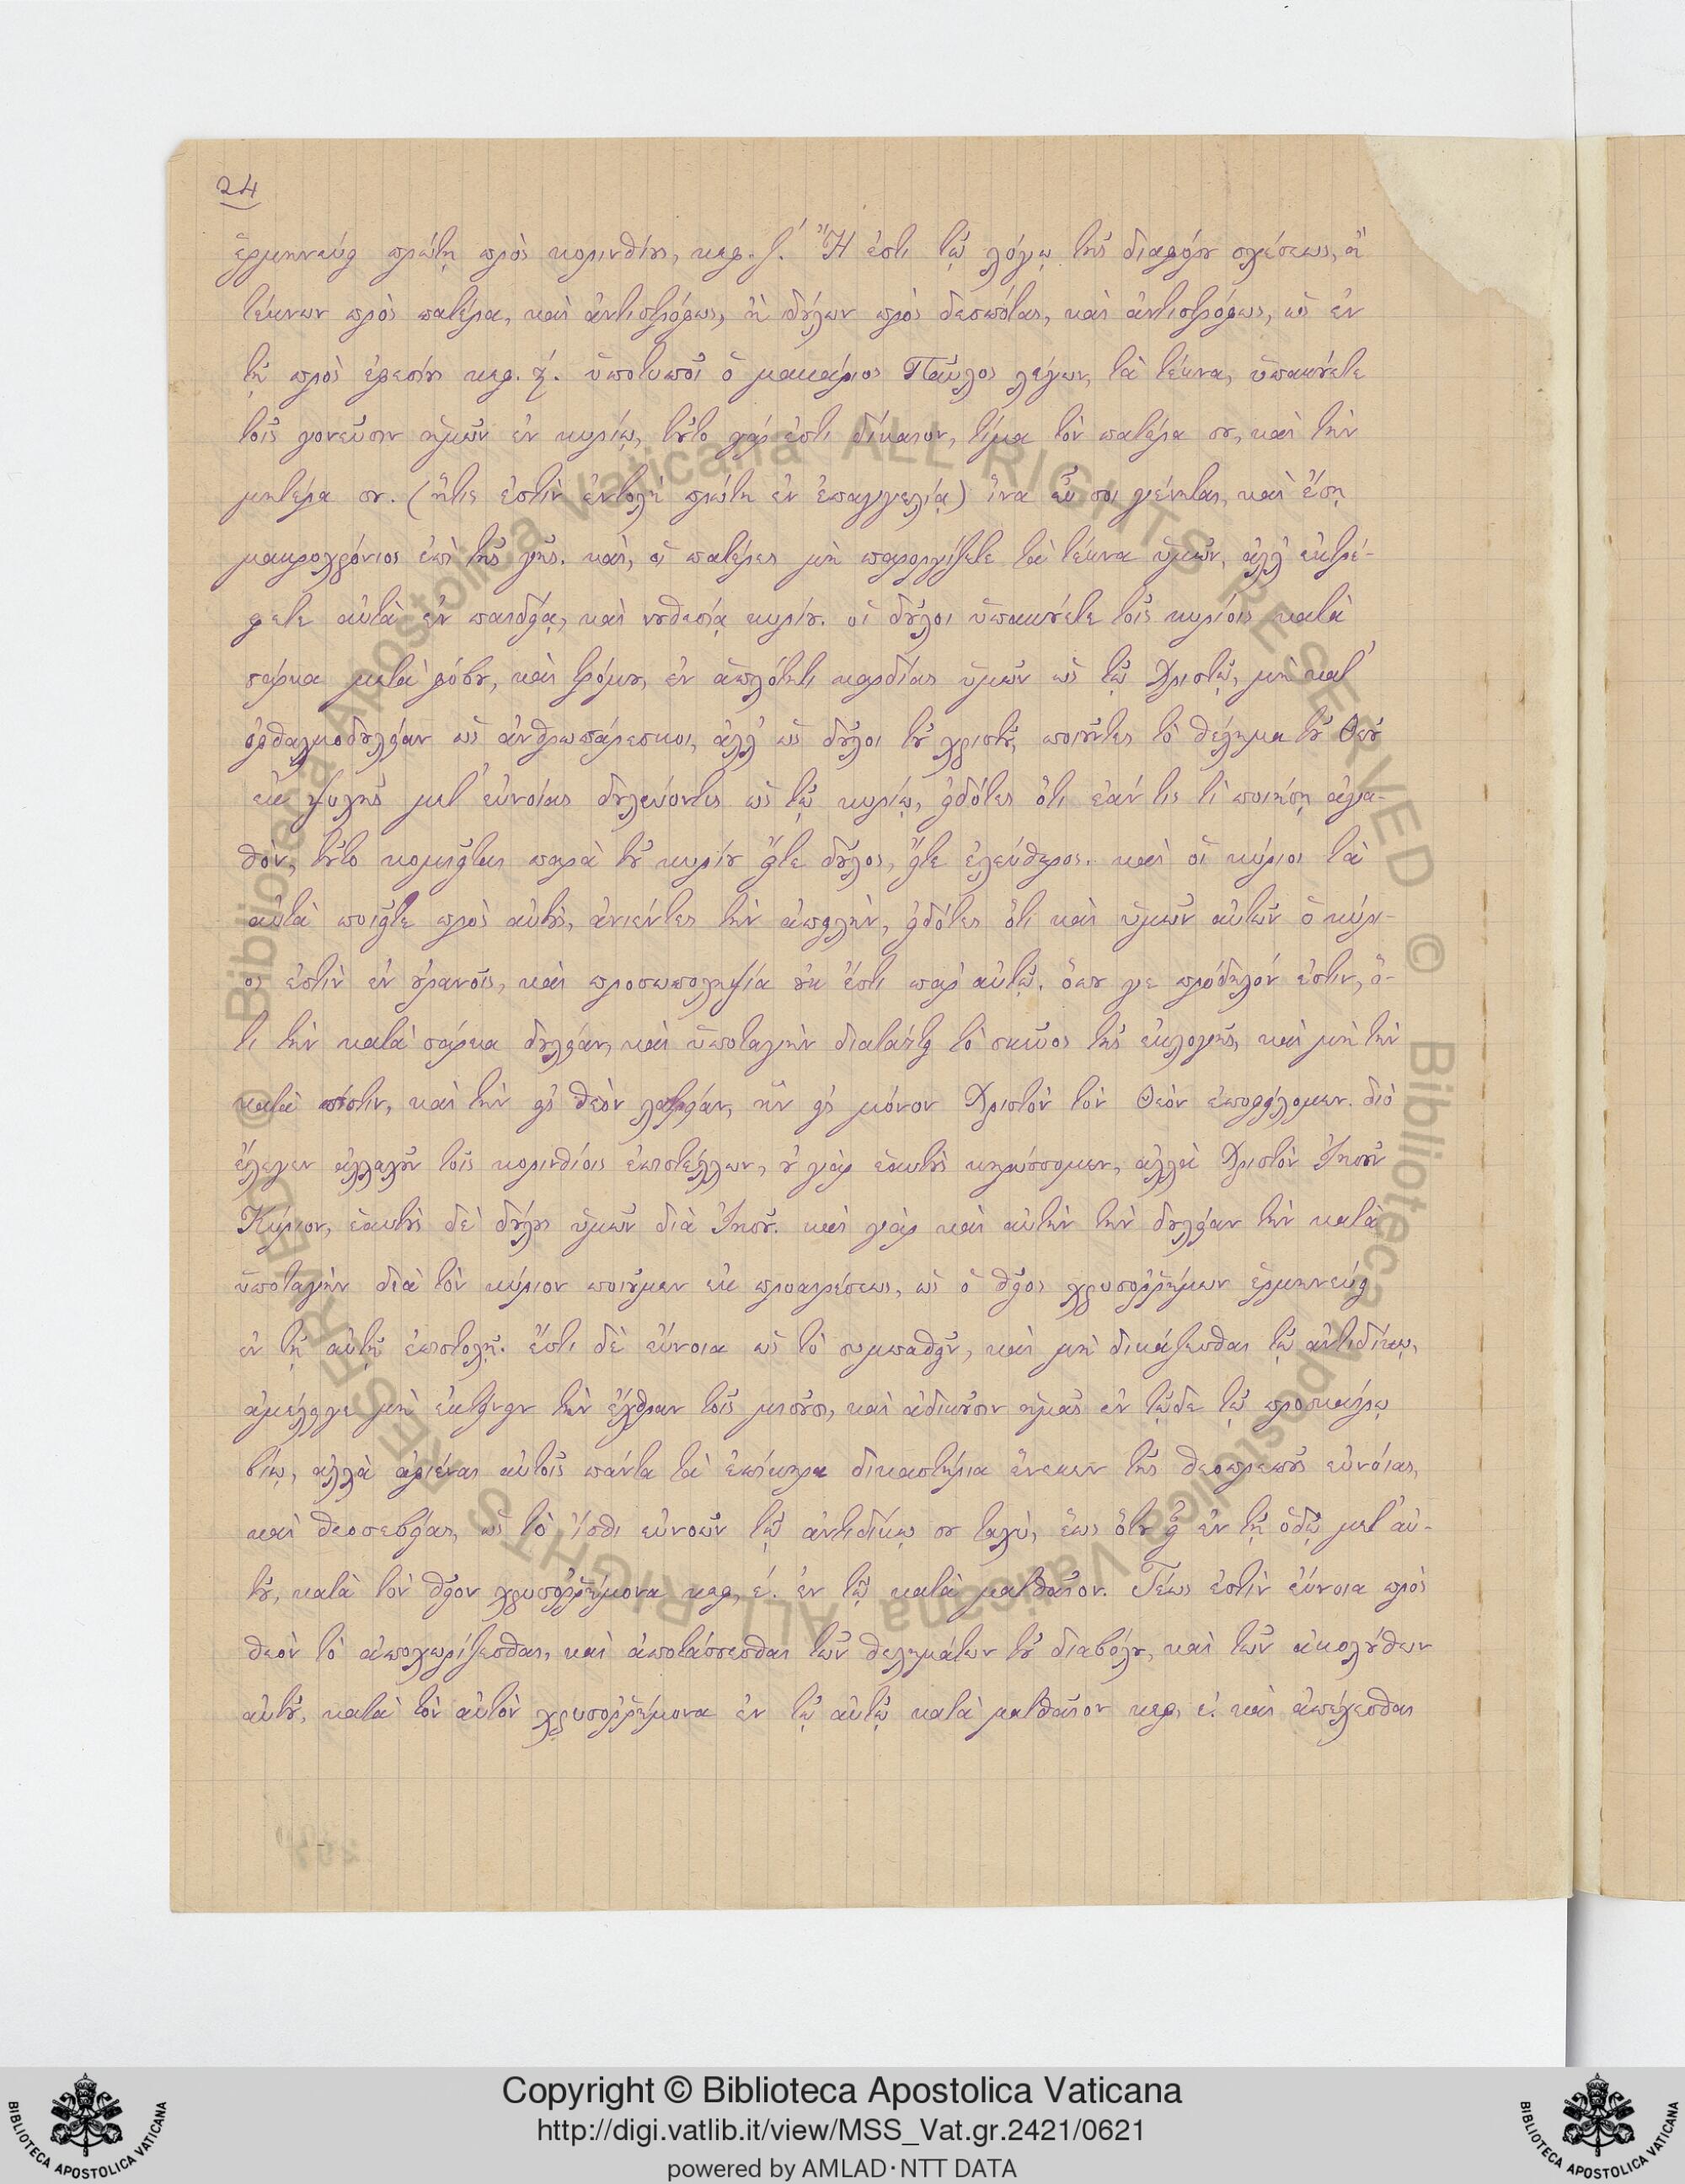 24
ἑρμηνεύει πρώτῃ πρὸς κορινθίους, κεφ. ζ΄. Ἢ ἐστι τῷ λόγῳ τῆς διαφόρου σχέσεως, ἢ
τέκνων πρὸς πατέρα, καὶ ἀντιστρόφως, ἢ δούλων πρὸς δεσπότας, καὶ ἀντιστρόφως, ὡς ἐν
τῇ πρὸς ἐφεσίους κεφ. ϛ΄. ὑποτυποῖ ὁ μακάριος Παῦλος λέγων, τὰ τέκνα, ὑπακούετε
τοῖς γονεῦσιν ἡμῶν ἐν κυρίῳ, τοῦτο γάρ ἐστι δίκαιον, τίμα τὸν πατέρα σου, καὶ τὴν
μητέρα σου. (ἥτις ἐστὶν ἐντολὴ πρώτη ἐν ἐπαγγελίᾳ) ἵνα εὖ σοι γένηται, καὶ ἔσῃ
μακροχρόνιος ἐπὶ τῆς γῆς. καὶ, οἱ πατέρες μὴ παροργίζετε τὰ τέκνα ὑμῶν, ἀλλ' ἐκτρέ-
φετε αὐτὰ ἐν παιδείᾳ, καὶ νουθεσίᾳ κυρίου. οἱ δοῦλοι ὑπακούετε τοῖς κυρίοις κατὰ
σάρκα μετὰ φόβου, καὶ τρόμου, ἐν ἁπλότητι καρδίας ὑμῶν ὡς τῷ Χριστῷ, μὴ κατ'
ὀφθαλμοδουλείαν ὡς ἀνθρωπάρεσκοι, ἀλλ' ὡς δοῦλοι τοῦ χριστοῦ, ποιοῦντες τὸ θέλημα τοῦ Θεοῦ
ἐκ ψυχῆς μετ' εὐνοίας δουλεύοντες ὡς τῷ κυρίῳ, εἰδότες ὅτι ἐάν τις τὶ ποιήσῃ ἀγα-
θόν, τοῦτο κομιεῖται παρὰ τοῦ κυρίου εἴτε δοῦλος, εἴτε ἐλεύθερος. καὶ οἱ κύριοι τὰ
αὐτὰ ποιεῖτε πρὸς αὐτούς, ἀνιέντες τὴν ἀπειλὴν, εἰδότες ὅτι καὶ ὑμῶν αὐτῶν ὁ κύρι-
ος ἐστὶν ἐν οὐρανοῖς, καὶ προσωποληψία οὐκ ἔστι παρ' αὐτῷ. ὅπου γε πρόδηλόν ἐστιν, ὅ-
τι τὴν κατὰ σάρκα δουλείαν, καὶ ὑποταγὴν διατάττει τὸ σκεῦος τῆς ἐκλογῆς, καὶ μὴ τὴν
κατὰ πίστιν, καὶ τὴν εἰς θεὸν λατρείαν, ἣν εἰς μόνον Χριστὸν τὸν Θεὸν ἐποφείλομεν. διὸ
ἔλεγεν ἀλλαχοῦ τοῖς κορινθίοις ἐπιστέλλων, οὐ γὰρ ἑαυτοὺς κηρύσσομεν, ἀλλὰ Χριστὸν Ἰησοῦν
Κύριον, ἑαυτοὺς δὲ δούλους ὑμῶν διὰ Ἰησοῦ. καὶ γὰρ καὶ αὐτὴν τὴν δουλείαν τὴν κατὰ
ὑποταγὴν διὰ τὸν κύριον ποιοῦμεν ἐκ προαιρέσεως, ὡς ὁ θεῖος χρυσοῤῥήμων ἑρμηνεύει
ἐν τῇ αὐτῇ ἐπιστολῇ. ἔστι δὲ εὔνοια ὡς τὸ συμπαθεῖν, καὶ μὴ δικάζεσθαι τῷ ἀντιδίκῳ,
ἀμέλειγε μὴ ἐκτείνειν τὴν ἔχθραν τοῖς μισοῦσι, καὶ ἀδικοῦσιν ἡμᾶς ἐν τῷδε τῷ προσκαίρῳ
βίῳ, ἀλλὰ ἀφιέναι αὐτοῖς πάντα τὰ ἐπίκηρα δικαστήρια ἕνεκεν τῆς θεοπρεποῦς εὐνοίας,
καὶ θεοσεβείας, ὡς τὸ ἴσθι εὐνοῶν τῷ ἀντιδίκῳ σου ταχὺ, ἕως ὅτου εἶ ἐν τῇ ὁδῷ μετ' αὐ-
τοῦ, κατὰ τὸν θεῖον χρυσοῤῥήμονα κεφ. ε΄. ἐν τῷ κατὰ ματθαῖον. Τέως ἐστὶν εὔνοια πρὸς
θεὸν τὸ ἀποχωρίζεσθαι, καὶ ἀποτάσσεσθαι τῶν θελημάτων τοῦ διαβόλου, καὶ τῶν ἀκολούθων
αὐτοῦ, κατὰ τὸν αὐτὸν χρυσοῤῥήμονα ἐν τῷ αὐτῷ κατὰ ματθαῖον κεφ. ε΄. καὶ ἀπέχεσθαι
Copyright © Biblioteca Apostolica Vaticana
http://digi.vatlib.it/view/MSS_Vat.gr.2421/0621
powered by AMLAD·NTT DATA